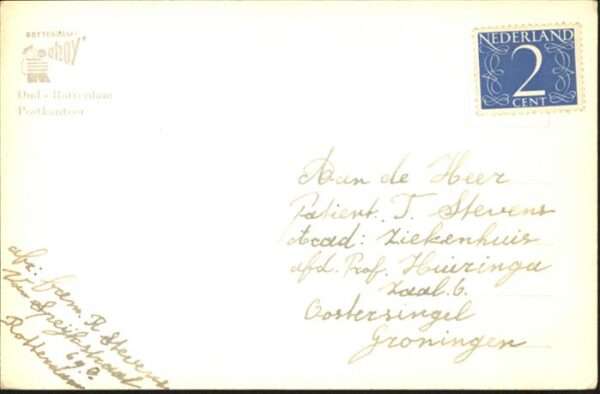 ROTTERDAM
ahoy'
Oud-Rotterdam
Postkantoor
NEDERLAND
2
CENT
Aan de Heer
Patient. T. Stevens
Acad: Ziekenhuis
afd. Prof. Huizinga
Zaal. 6.
Oostersingel
Groningen
afz: Fam. R Stevens
Van Speijkstraat
69a
Rotterdam